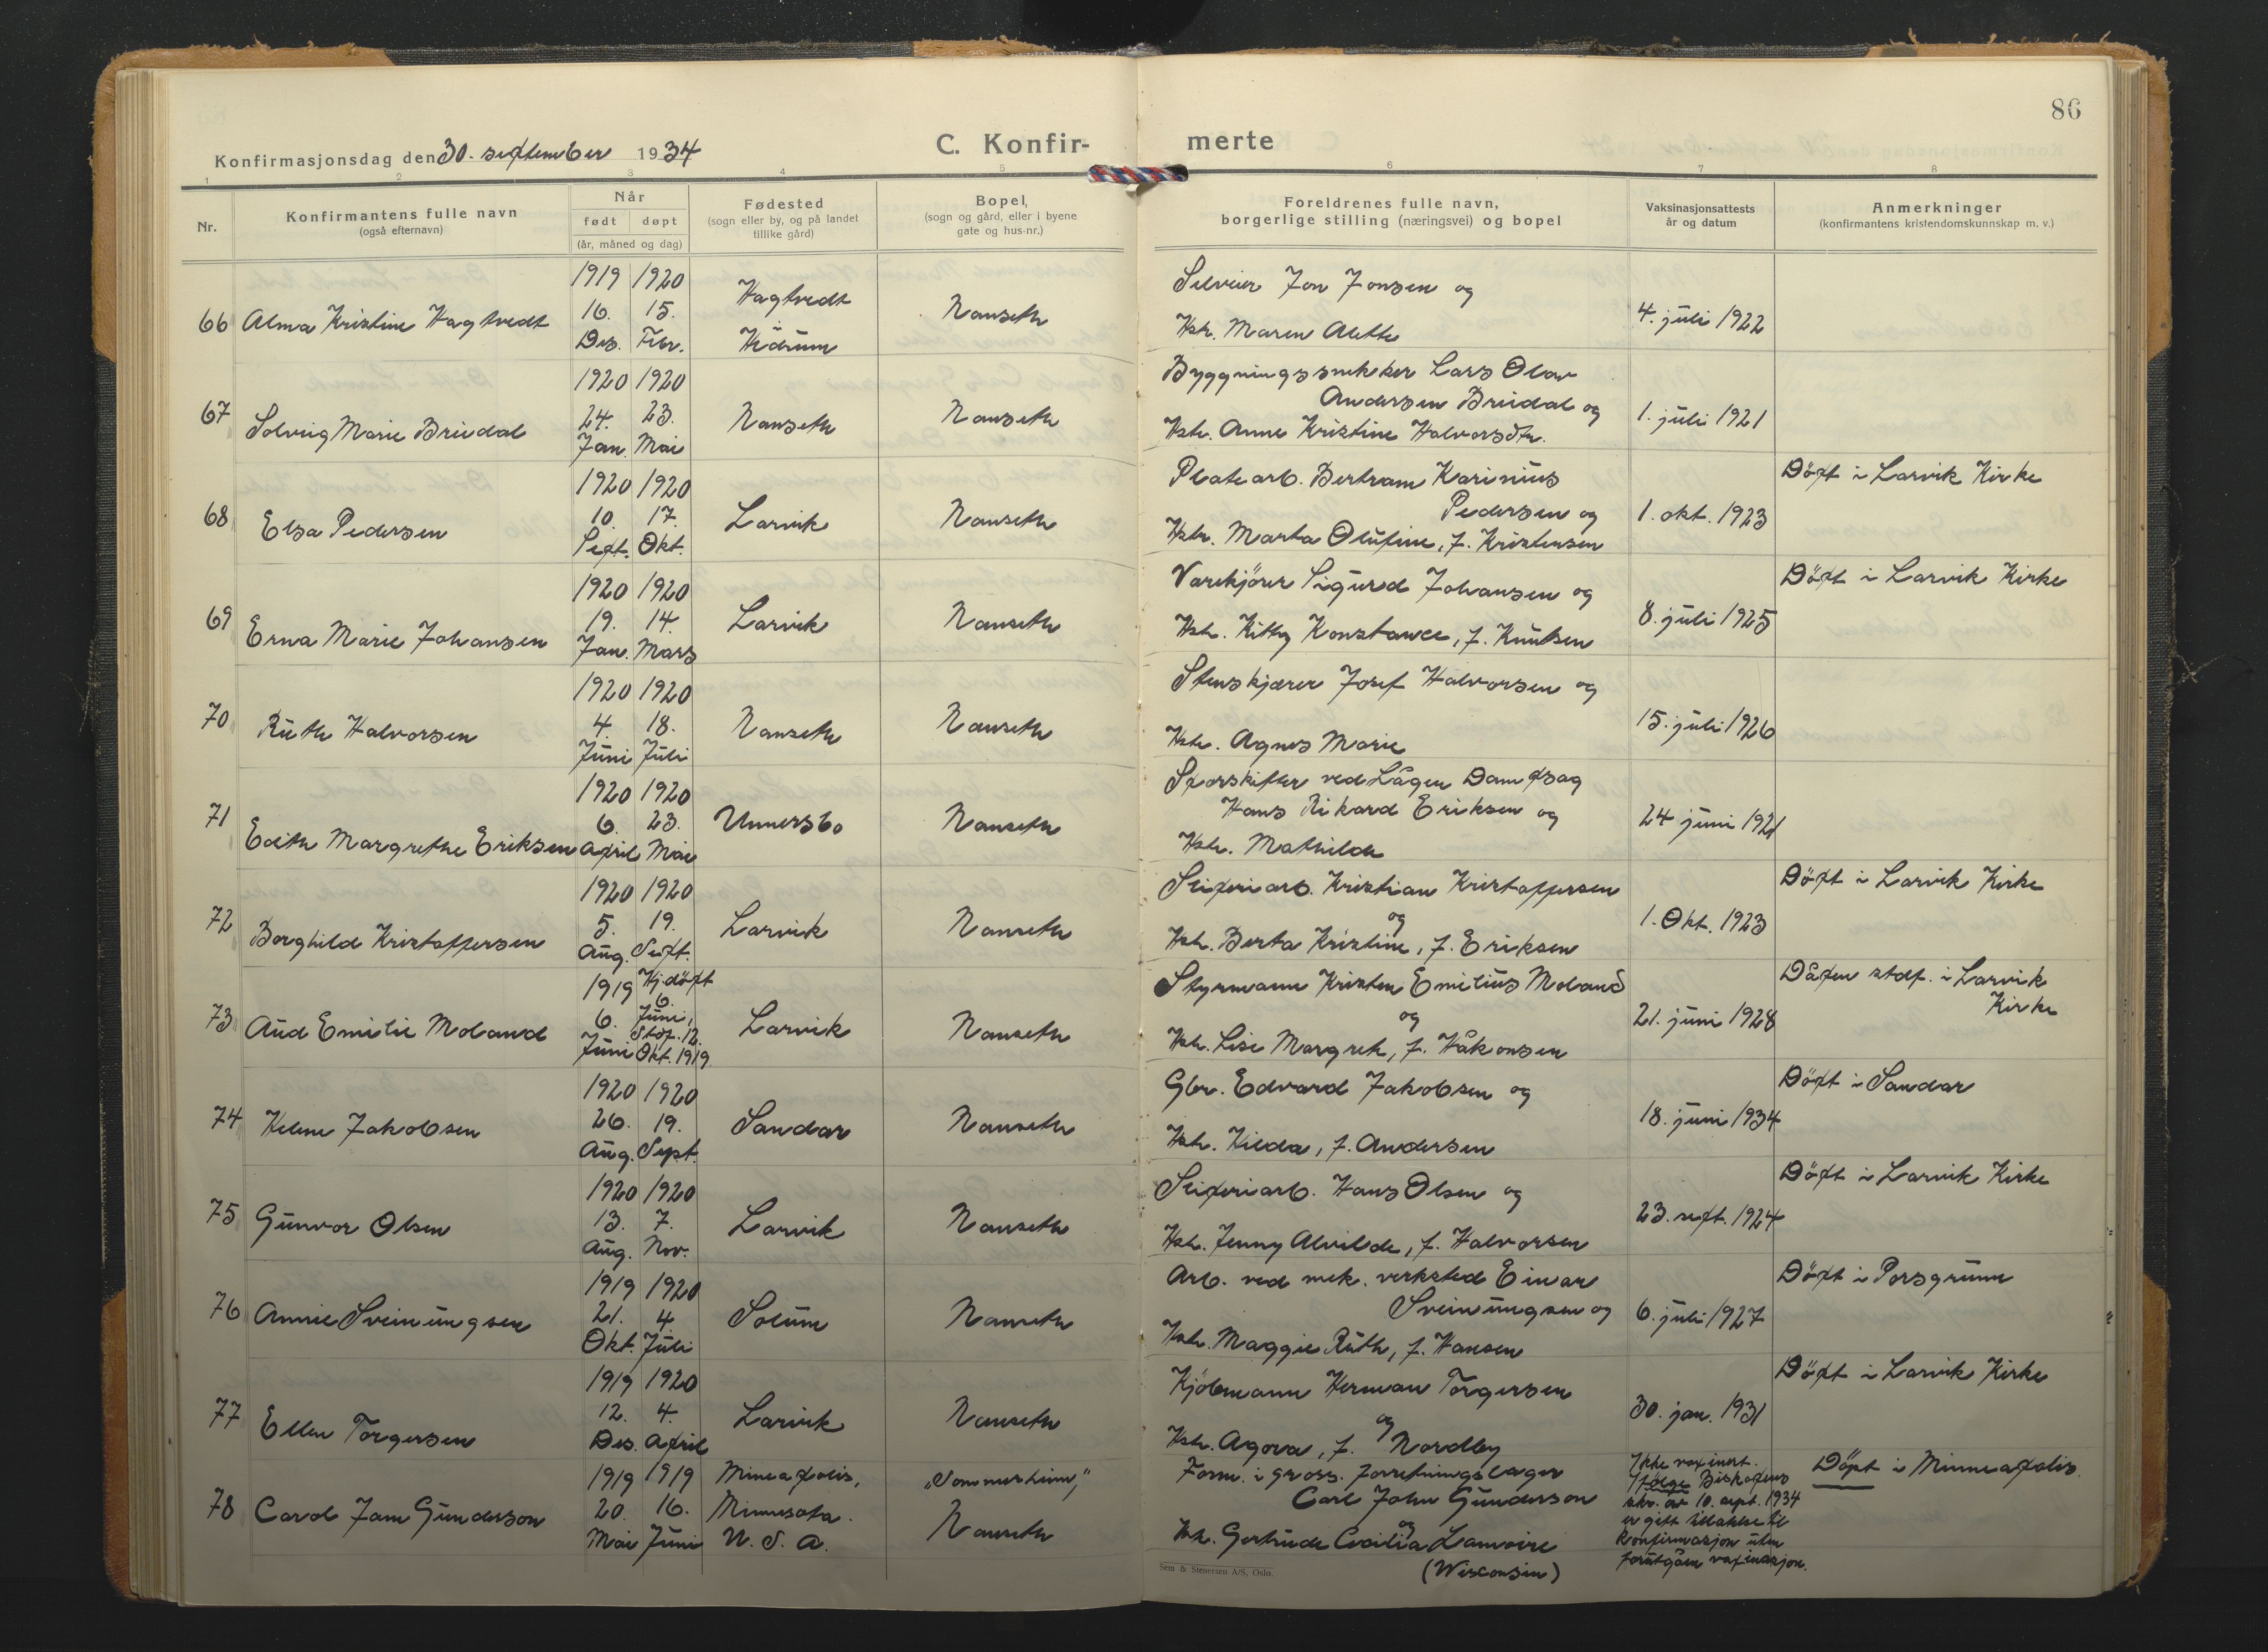 86
Konfirmasjonsdag den 30. september 1934
C. Konfir-
merte
1 2 3 4 5 6 7 8
Nr.
Konfirmantens fulle navn
(også efternavn)
Når
født døpt
(år, måned og dag)
Fødested
(sogn eller by, og på landet
tillike gård)
Bopel,
(sogn og gård, eller i byene
gate og hus-nr.)
Foreldrenes fulle navn,
borgerlige stilling (næringsvei) og bopel
Vaksinasjonsattests
år og datum
Anmerkninger
(konfirmantens kristendomskunnskap m. v.)
66 Alma Kristine Hagtvedt
1919 1920
16. 15.
Des. Febr.
Hagtvedt
Hedrum
Nanseth
Selveier Jon Jonsen og
Hstr. Maren Alette
4. juli 1922
67 Solveig Marie Breidal
1920 1920
24. 23.
Jan. Mai
Nanseth
Nanseth
Byggningssnekker Lars Olav
Andersen Breidal og
Hstr. Anne Kristine Halvorsdtr.
1. juli 1921
68 Elsa Pedersen
1920 1920
10. 17.
Sept. Okt.
Larvik
Nanseth
Platearb. Bertram Karinius
Pedersen og
Hstr. Marta Olufine, f. Kristensen
1. okt. 1923
Döpt i Larvik Kirke
69 Erna Marie Johansen
1920 1920
19. 14.
Jan. Mars
Larvik
Nanseth
Varekjörer Sigurd Johansen og
Hstr. Kitty Konstance, f. Knutsen
8. juli 1925
Döpt i Larvik Kirke
70 Ruth Halvorsen
1920 1920
4. 18.
Juni Juli
Nanseth
Nanseth
Stenskjærer Josef Halvorsen og
Hstr. Agnes Marie
15. juli 1926
71 Edith Margrethe Eriksen
1920 1920
6. 23.
April Mai
Unnersbo
Nanseth
Sporskifter ved Lågen Dampsag
Hans Rikard Eriksen og
Hstr. Mathilde
24 juni 1921
72 Borghild Kristoffersen
1920 1920
5. 19.
Aug. Sept.
Larvik
Nanseth
Sliperiarb. Kristian Kristoffersen
og
Hstr. Berta Kristine, f. Eriksen
1. Okt. 1923
Döpt i Larvik Kirke
73 Aud Emilie Moland
1919 Hjdöpt
6.
6. Juni,
Stdf. 12.
Juni Okt. 1919
Larvik
Nanseth
Styrmann Kristen Emilius Moland
og
Hstr. Lise Margrete, f. Håkonsen
21. juni 1928
Dåpen stdf. i Larvik
Kirke
74 Helene Jakobsen
1920 1920
26. 19.
Aug. Sept.
Sandar
Nanseth
Gbr. Edvard Jakobsen og
Hstr. Hilda, f. Andersen
18. juni 1934
Döpt i Sandar
75 Gunvor Olsen
1920 1920
13. 7.
Aug. Nov.
Larvik
Nanseth
Sliperiarb. Hans Olsen og
Hstr. Jenny Alvilde, f. Halvorsen
23. sept. 1924
Döpt i Larvik Kirke
76 Annie Sveinungsen
1919 1920
21. 4.
Okt. Juli
Solum
Nanseth
Arb. ved mek. verksted Einar
Sveinungsen og
Hstr. Maggie Ruth, f. Hansen
6. juli 1927
Döpt i Porsgrunn
77 Ellen Torgersen
1919 1920
12. 4.
Des. April
Larvik
Nanseth
Kjöbmann Herman Torgersen
og
Hstr. Agova, f. Nordby
30. jan. 1931
Döpt i Larvik Kirke
78 Carol Jane Gunderson
1919 1919
20. 16.
Mai Juni
Mineapolis,
Minnesota.
U. S. A.
"Sommerheim,"
Nanseth
Form. i gross. forretningslager
Carl John Gunderson
og
Hstr. Gertrude Cecilia Lamoire
(Wisconsin)
Ikke vaxinert.
Ifölge Biskopens
skr. av 10. sept. 1934
er gitt tillatelse til
konfirmasjon uten
forutgåen vaxinasjon.
Döpt i Minneapolis.
Sem & Stenersen A/S, Oslo.